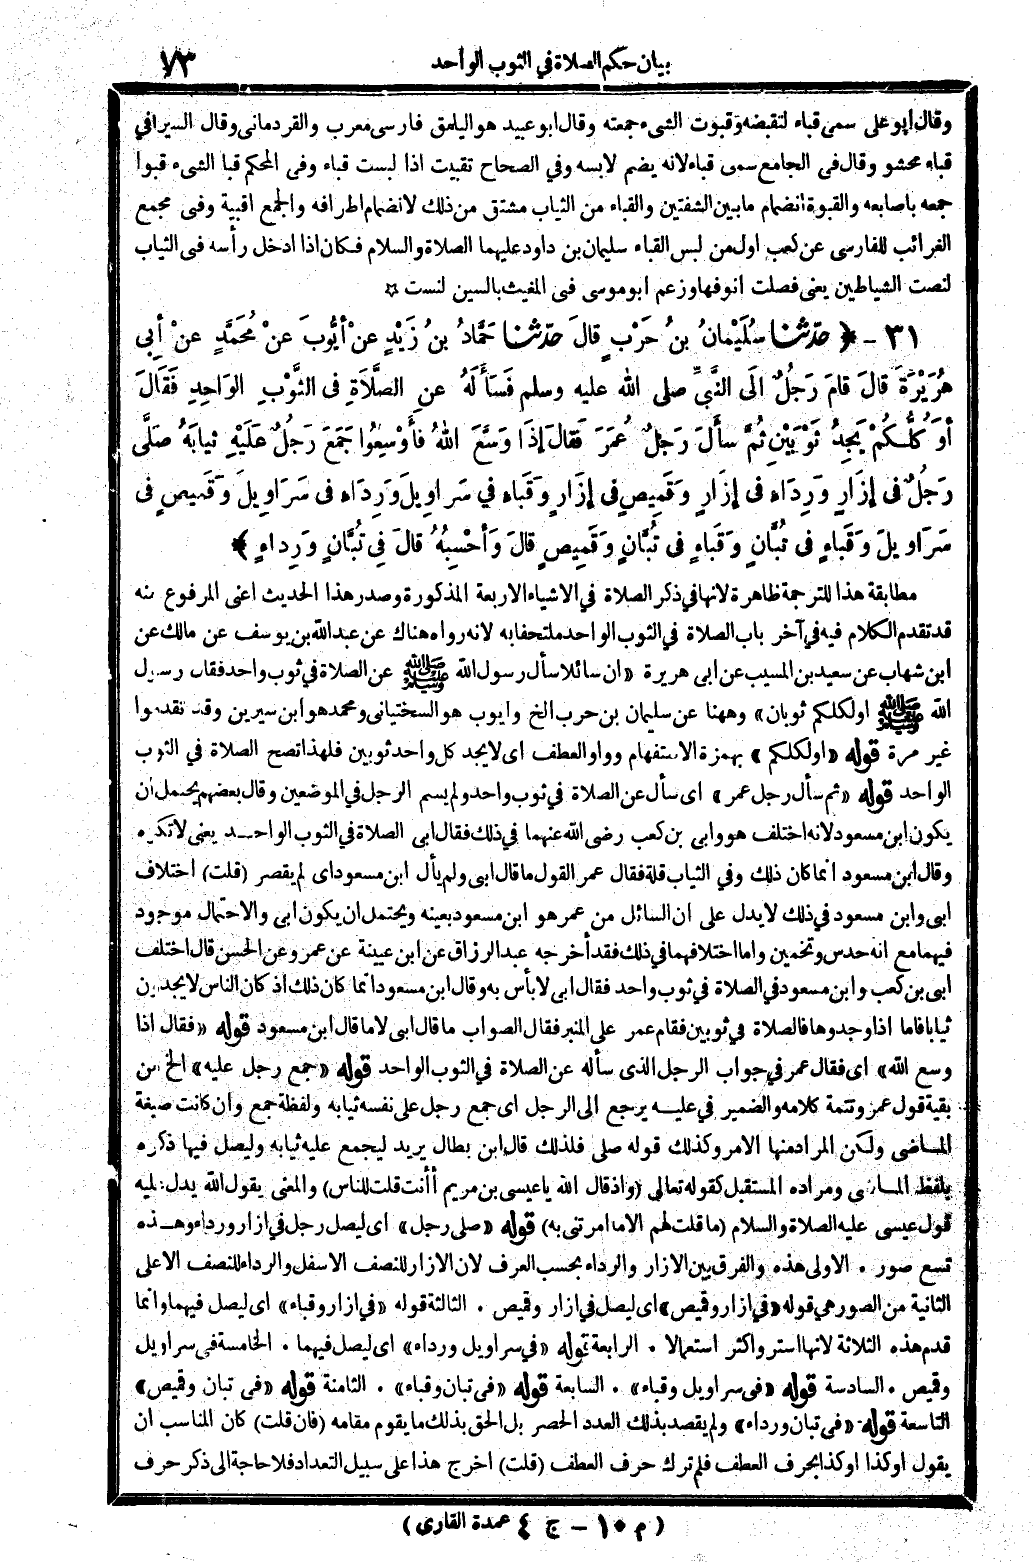 بيان حكم الصلاة في الثوب الواحد
٧٣
وقال ابو على سمى قباء لتقبضه وقبوت الشىء جمعته وقال ابو عبيد هو اليلمق فارسى معرب والقردمانى وقال السيرافي
قباء محشو وقال فى الجامع سمى قباء لانه يضم لابسه وفي الصحاح تقبيت اذا لبست قباء وفى المحكم قبا الشىء قبوا
جمعه باصابعه والقبوة انضمام ما بين الشفتين والقباء من الثياب مشتق من ذلك لانضمام اطرافه والجمع اقبية وفى مجمع
الغرائب للفارسى عن كعب اول من لبس القباء سليمان بن داود عليهما الصلاة والسلام فكان اذا ادخل رأسه فى الثياب
لنصت الشياطين يعنى فصلت انوفها وزعم ابو موسى فى المغيث بالسين لنست ✡
٣١ - ﴿ حَدَّثَنَا سُلَيْمَانُ بنُ حَرْبٍ قالَ حَدَّثَنَا حَمَّادُ بنُ زَيْدٍ عنْ أيُّوبَ عَنْ مُحَمَّدٍ عنْ أبِي
هُرَيْرَةَ قالَ قامَ رَجُلٌ الَى النَّبيِّ صلى الله عليه وسلم فَسَأَلَهُ عنِ الصَّلَاةِ فى الثَّوْبِ الوَاحِدِ فَقَالَ
أوَ كُلُّكُمْ يَجِدُ ثَوْبَيْنِ ثُمَّ سألَ رَجُلٌ عُمَرَ فَقالَ إذَا وَسَّعَ اللهُ فأوْسِعُوا جَمَعَ رَجُلٌ عَلَيْهِ ثيابَهُ صَلَّى
رَجُلٌ فى إزَارٍ وَرِدَاءٍ فى إزَارٍ وَقَمِيصٍ فى إزَارٍ وَقَبَاءٍ في سَرَاوِيلَ وَرِدَاءٍ فى سَرَاوِيلَ وَقَمِيصٍ فى
سَرَاوِيلَ وَقَبَاءٍ فى تُبَّانٍ وَقَبَاءٍ فى تُبَّانٍ وَقَمِيصٍ قالَ وَأحْسِبُهُ قالَ فِي تُبَّانٍ وَرِداءٍ ﴾
مطابقة هذا للترجمة ظاهرة لانها في ذكر الصلاة في الاشياء الاربعة المذكورة وصدر هذا الحديث اعنى المرفوع منه
قد تقدم الكلام فيه في آخر باب الصلاة في الثوب الواحد ملتحفا به لانه رواه هناك عن عبد الله بن يوسف عن مالك عن
ابن شهاب عن سعيد بن المسيب عن ابى هريرة «ان سائلا سأل رسول الله ﷺ عن الصلاة في ثوب واحد فقال رسول
الله ﷺ اولكلكم ثوبان» وههنا عن سليمان بن حرب الخ وايوب هو السختيانى ومحمد هو ابن سيرين وقد تقدموا
غير مرة قوله «اولكلكم» بهمزة الاستفهام وواو العطف اى لا يجد كل واحد ثوبين فلهذا تصح الصلاة في الثوب
الواحد قوله «ثم سأل رجل عمر» اى سأل عن الصلاة في ثوب واحد ولم يسم الرجل في الموضعين وقال بعضهم يحتمل أن
يكون ابن مسعود لانه اختلف هو وابى بن كعب رضى الله عنهما في ذلك فقال ابى الصلاة في الثوب الواحد يعنى لا تكره
وقال ابن مسعود انما كان ذلك وفي الثياب قلة فقال عمر القول ما قال ابى ولم يأل ابن مسعود اى لم يقصر (قلت) اختلاف
ابى وابن مسعود في ذلك لا يدل على ان السائل من عمر هو ابن مسعود بعينه ويحتمل ان يكون ابى والاحتمال موجود
فيهما مع انه حدس وتخمين واما اختلافهما في ذلك فقد أخرجه عبد الرزاق عن ابن عيينة عن عمرو عن الحسن قال اختلف
ابى بن كعب وابن مسعود في الصلاة في ثوب واحد فقال ابى لا بأس به وقال ابن مسعود انما كان ذلك اذ كان الناس لا يجدون
ثيابا فاما اذا وجدوها فالصلاة في ثوبين فقام عمر على المنبر فقال الصواب ما قال ابى لا ما قال ابن مسعود قوله «فقال اذا
وسع الله» اى فقال عمر في جواب الرجل الذى سأله عن الصلاة في الثوب الواحد قوله «جمع رجل عليه» الخ من
بقية قول عمر وتتمة كلامه والضمير في عليه يرجع الى الرجل اى جمع رجل على نفسه ثيابه ولفظة جمع وان كانت صيغة
الماضى ولكن المراد منها الامر وكذلك قوله صلى فلذلك قال ابن بطال يريد ليجمع عليه ثيابه وليصل فيها ذكره
بلفظ الماضى ومراده المستقبل كقوله تعالى (واذ قال الله يا عيسى بن مريم أأنت قلت للناس) والمعنى يقول الله يدل عليه
قول عيسى عليه الصلاة والسلام (ما قلت لهم الا ما امرتنى به) قوله «صلى رجل» اى ليصل رجل في ازار ورداء وهذه
تسع صور . الاولى هذه والفرق بين الازار والرداء بحسب العرف لان الازار للنصف الاسفل والرداء للنصف الاعلى
الثانية من الصور هي قوله «في ازار وقميص» اى ليصل في ازار وقميص . الثالثة قوله «في ازار وقباء» اى ليصل فيهما وانما
قدم هذه الثلاثة لانها استر واكثر استعمالا . الرابعة قوله «في سراويل ورداء» اى ليصل فيهما . الخامسة فى سراويل
وقميص . السادسة قوله «فى سراويل وقباء» . السابعة قوله «فى تبان وقباء» . الثامنة قوله «فى تبان وقميص»
التاسعة قوله «فى تبان ورداء» ولم يقصد بذلك العدد الحصر بل الحق بذلك ما يقوم مقامه (فان قلت) كان المناسب ان
يقول او كذا او كذا بحرف العطف فلم ترك حرف العطف (قلت) اخرج هذا على سبيل التعداد فلا حاجة الى ذكر حرف
(م ١٠ - ج ٤ عمدة القارى)